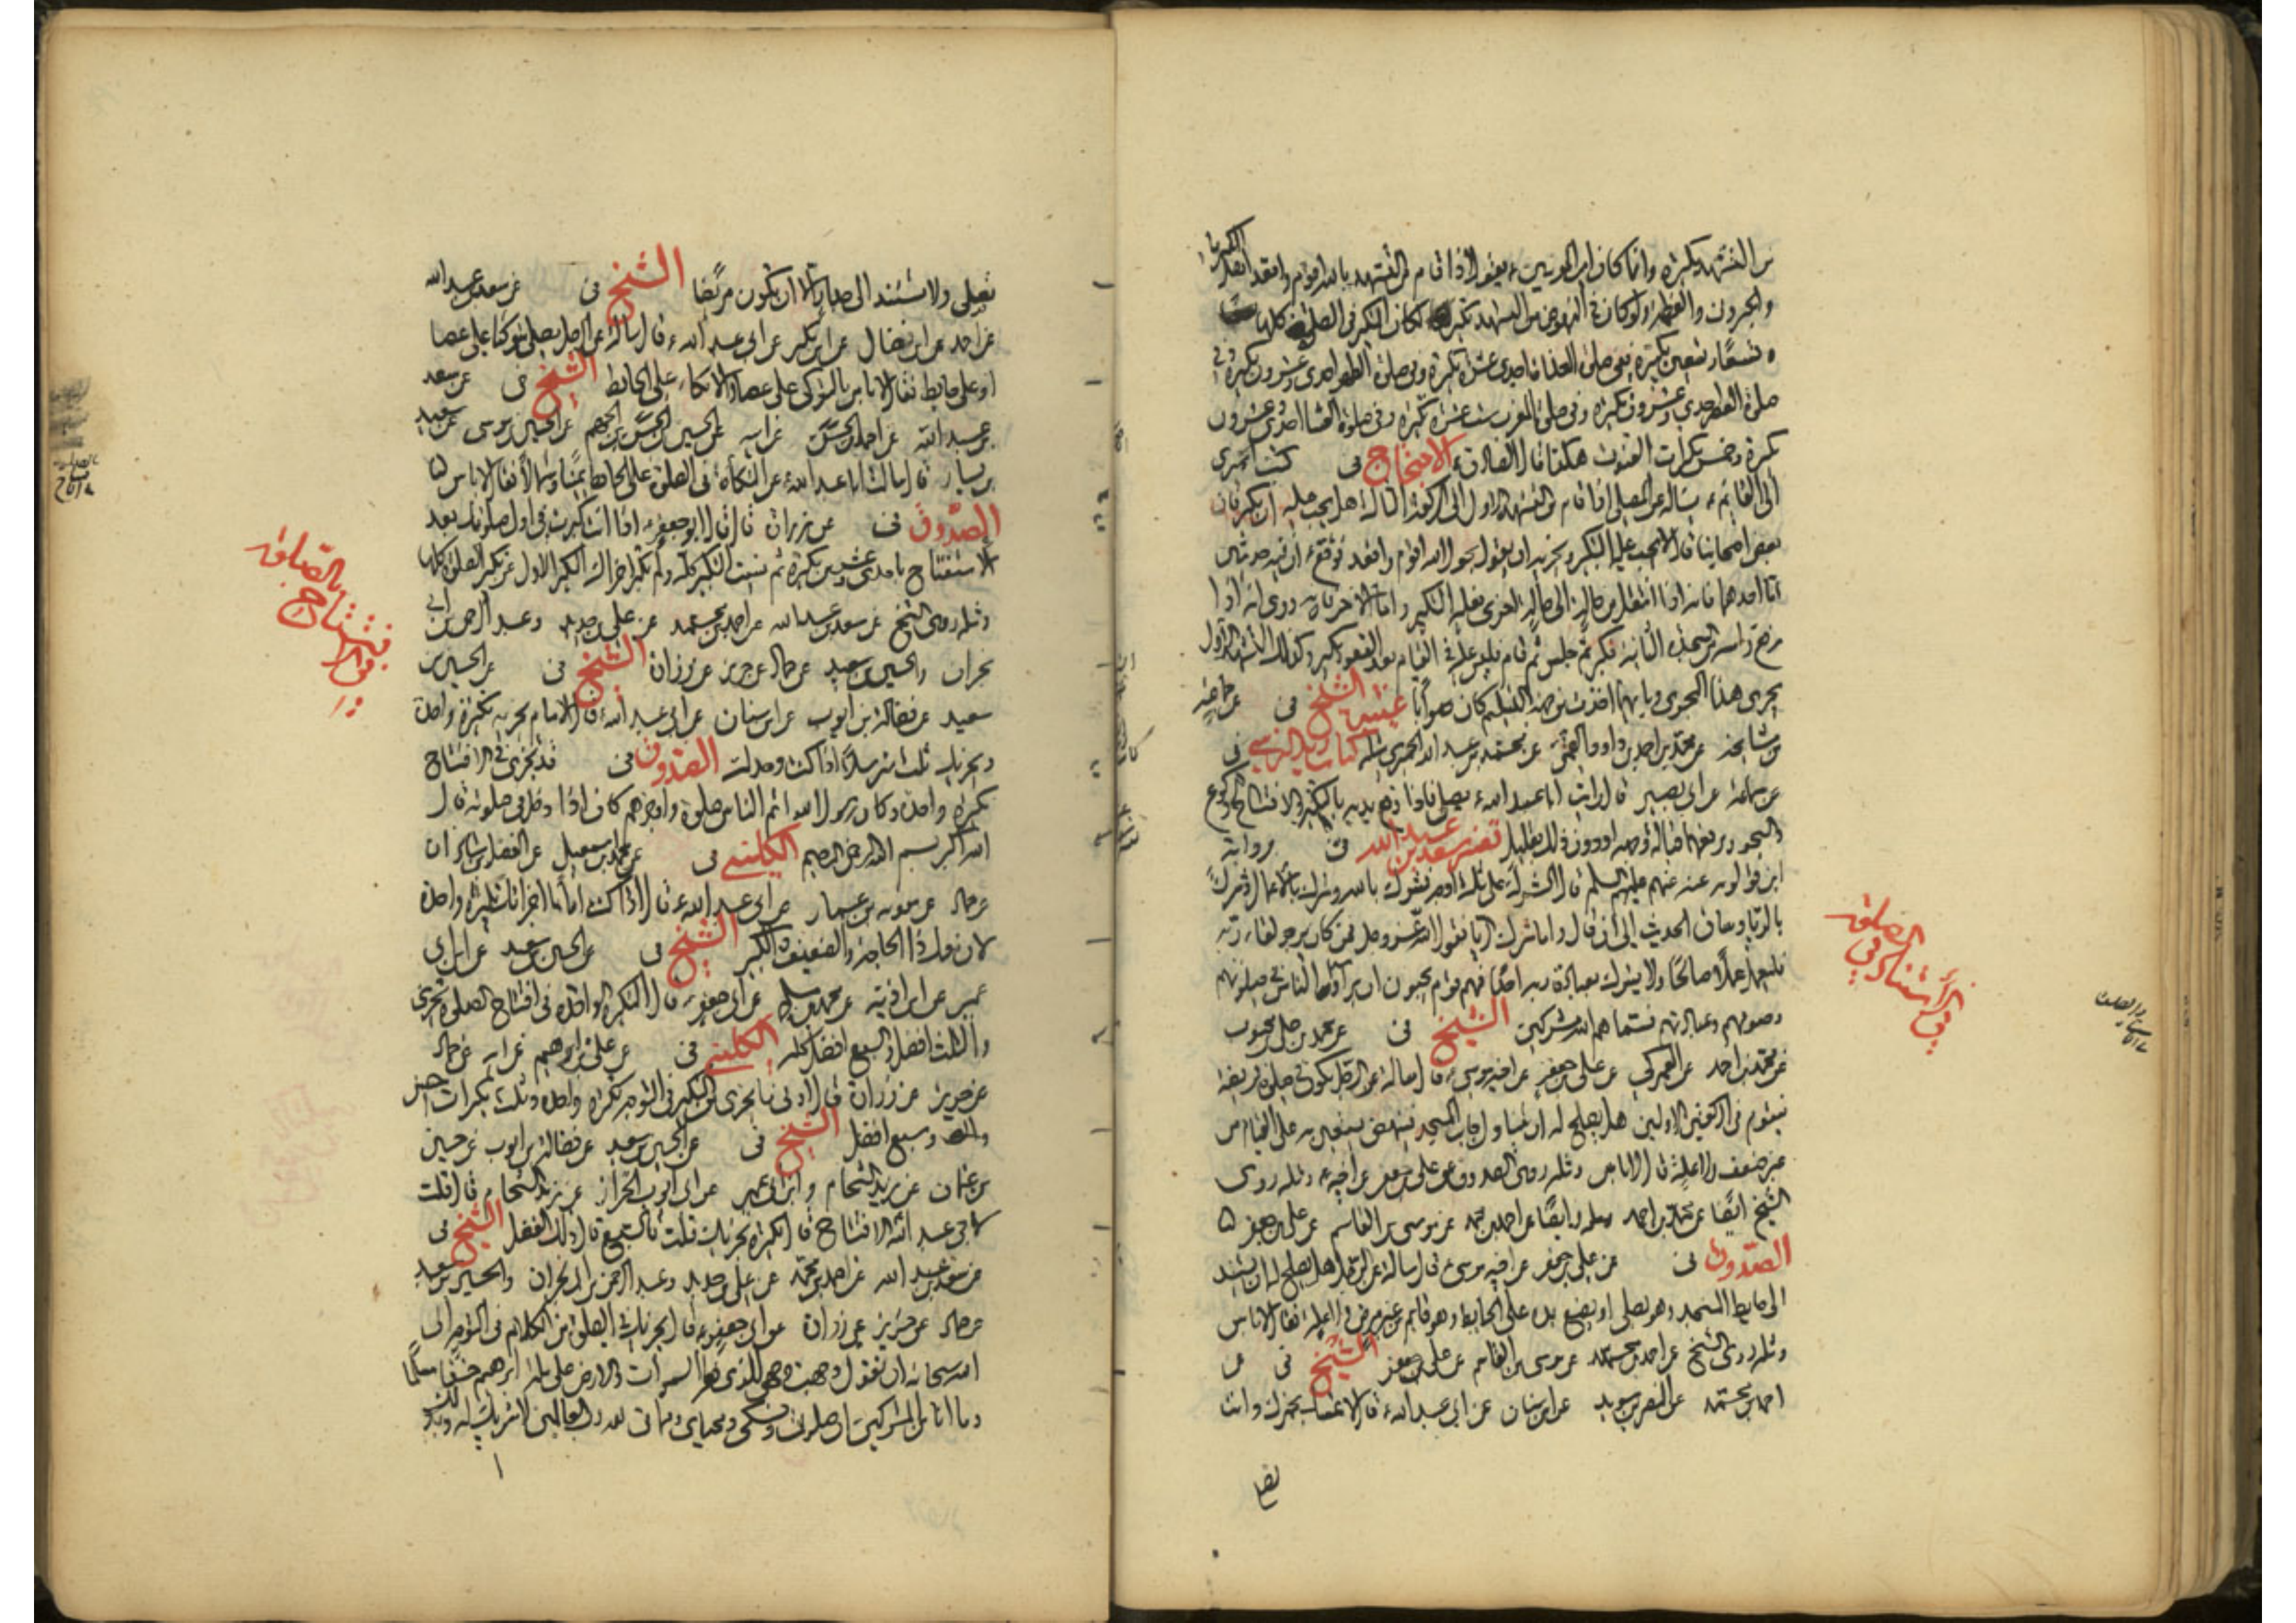 من التشهد بتكبيرة وانما كان امير المؤمنين ع يقول اذا قام من التشهد بالله اقوم واقعد اهل الكبرياء
والجبروت والعظمة ولو كان في النهوض من التشهد تكبير لكان التكبير في الصلوة كلها
تسعا وتسعين تكبيرة ففي صلوة الغداة احدى عشرة تكبيرة وفي صلوة الظهر احدى وعشرون تكبيرة وفي
صلوة العصر احدى وعشرون تكبيرة وفي صلوة المغرب ست عشرة تكبيرة وفي صلوة العشاء احدى وعشرون
تكبيرة وخمس تكبيرات القنوت هكذا قال الصادق ع الاحتجاج في كتب الحميري
الى القائم ع يسأله عن المصلي اذا قام من التشهد الاول الى الركعة الثالثة هل يجب عليه ان يكبر فان
بعض اصحابنا قال لا يجب عليه التكبير ويجزيه ان يقول بحول الله اقوم واقعد فوقع ع ان فيه حديثين
اما احدهما فانه اذا انتقل من حالة الى حالة اخرى فعليه التكبير واما الاخر فانه روى انه اذا
رفع راسه من السجدة الثانية فكبر ثم جلس ثم قام فليس عليه في القيام بعد القعود تكبير وكذلك التشهد الاول
يجري هذا المجرى وبايهما اخذت من جهة التسليم كان صوابا غيبة الشيخ في عن جماعة
من مشايخه عن محمد بن احمد بن داود القمي عن محمد بن عبد الله الحميري مثله كتاب زيد النرسي في
عن سماعة عن ابي بصير قال رايت ابا عبد الله ع يصلي فاذا رفع يديه بالتكبير للافتتاح والركوع
والسجود يرفعهما قبالة وجهه او دون ذلك بقليل تفسير سعد بن عبد الله في رواية
ابن قولويه عنه عنهم عليهم السلم قال الشرك على ثلثة اوجه فشرك بالله وشرك بالاعمال وشرك
بالريا وساق الحديث الى ان قال واما شرك الريا فقول الله عز وجل فمن كان يرجو لقاء ربه
فليعمل عملا صالحا ولا يشرك بعبادة ربه احدا فهم قوم يحبون ان يراهم الناس في صلوتهم
وصومهم وعبادتهم فسماهم الله مشركين الشيخ في عن محمد بن علي بن محبوب
عن محمد بن احمد عن العمركي عن علي بن جعفر عن اخيه موسى ع قال سالته عن الرجل يكون في صلوة فريضة
فيقوم في الركعتين الاولين هل يصلح له ان يتناول جانب المسجد فينهض يستعين به على القيام من
غير ضعف ولا علة قال لا باس ومثله روى الصدوق عن علي بن جعفر عن اخيه ع ومثله روى
الشيخ ايضا عن محمد بن احمد مثله وايضا عن احمد بن محمد عن موسى بن القاسم عن علي بن جعفر
الصدوق في عن علي بن جعفر عن اخيه موسى ع قال سالته عن الرجل هل يصلح له ان يستند
الى حايط المسجد وهو يصلي او يضع يده على الحايط وهو قائم من غير مرض ولا علة فقال لا باس
ومثله روى الشيخ عن احمد بن محمد عن موسى بن القاسم عن علي بن جعفر الشيخ في عن
احمد بن محمد عن النضر بن سويد عن ابن سنان عن ابي عبد الله ع قال لا تمسك بخمرك وانت
تصلي
في الاستناد في الصلوة
تصلي ولا تستند الى جدار الا ان تكون مريضا الشيخ في عن سعد بن عبد الله
عن احمد عن ابن فضال عن ابن بكير عن ابي عبد الله ع قال سالته عن الرجل يصلي متوكئا على عصا
او على حايط فقال لا باس بالتوكي على عصا والاتكاء على الحايط الشيخ في عن سعد
بن عبد الله عن احمد بن الحسن عن ابيه عن الحسين بن الجهم عن الحسين بن موسى عن سعيد
بن يسار قال سالت ابا عبد الله ع عن التكأة في الصلوة على الحايط يمينا وشمالا فقال لا باس
الصدوق في عن زرارة قال قال ابو جعفر ع اذا انت كبرت في اول صلوتك بعد
الاستفتاح باحدى وعشرين تكبيرة ثم نسيت التكبير كله ولم تكبر اجزاك التكبير الاول عن تكبير الصلوة كلها
ومثله روى الشيخ عن سعد بن عبد الله عن احمد بن محمد عن علي بن حديد وعبد الرحمن بن ابي
نجران والحسين بن سعيد عن حماد عن حريز عن زرارة الشيخ في عن الحسين بن
سعيد عن فضالة بن ايوب عن ابن سنان عن ابي عبد الله ع قال الامام يجزيه تكبيرة واحدة
ويجزيك ثلث مترسلا اذا كنت وحدك الصدوق في قد يجزي في الافتتاح
تكبيرة واحدة وكان رسول الله اتم الناس صلوة واوجزهم كان اذا دخل في صلوته قال
الله اكبر بسم الله الرحمن الرحيم الكليني في عن محمد بن اسمعيل عن الفضل بن شاذان
عن حماد عن معوية بن عمار عن ابي عبد الله ع قال اذا كنت اماما اجزاتك تكبيرة واحدة
لان معك ذا الحاجة والضعيف والكبير الشيخ في عن الحسين بن سعيد عن ابن ابي
عمير عن ابن اذينة عن محمد بن مسلم عن ابي جعفر ع قال التكبيرة الواحدة في افتتاح الصلوة تجزي
والثلث افضل والسبع افضل كله الكليني في عن علي بن ابرهيم عن ابيه عن حماد
عن حريز عن زرارة قال ادنى ما يجزي من التكبير في التوجه تكبيرة واحدة وثلث تكبيرات احسن
وسبع افضل الشيخ في عن الحسين بن سعيد عن فضالة بن ايوب عن حسين
بن عثمان عن زيد الشحام وابن ابي عمير عن ابي ايوب الخزاز عن زيد الشحام قال قلت
لابي عبد الله الافتتاح قال تكبيرة تجزيك قلت فالسبع قال ذلك الفضل الشيخ في
عن سعد بن عبد الله عن احمد بن محمد عن علي بن حديد وعبد الرحمن بن ابي نجران والحسين بن سعيد
عن حماد عن حريز عن زرارة عن ابي جعفر ع قال يجزيك في الصلوة من الكلام في التوجه الى
الله سبحانه ان تقول وجهت وجهي للذي فطر السموات والارض على ملة ابرهيم حنيفا مسلما
وما انا من المشركين ان صلوتي ونسكي ومحياي ومماتي لله رب العالمين لا شريك له وبذلك
في افتتاح الصلوة